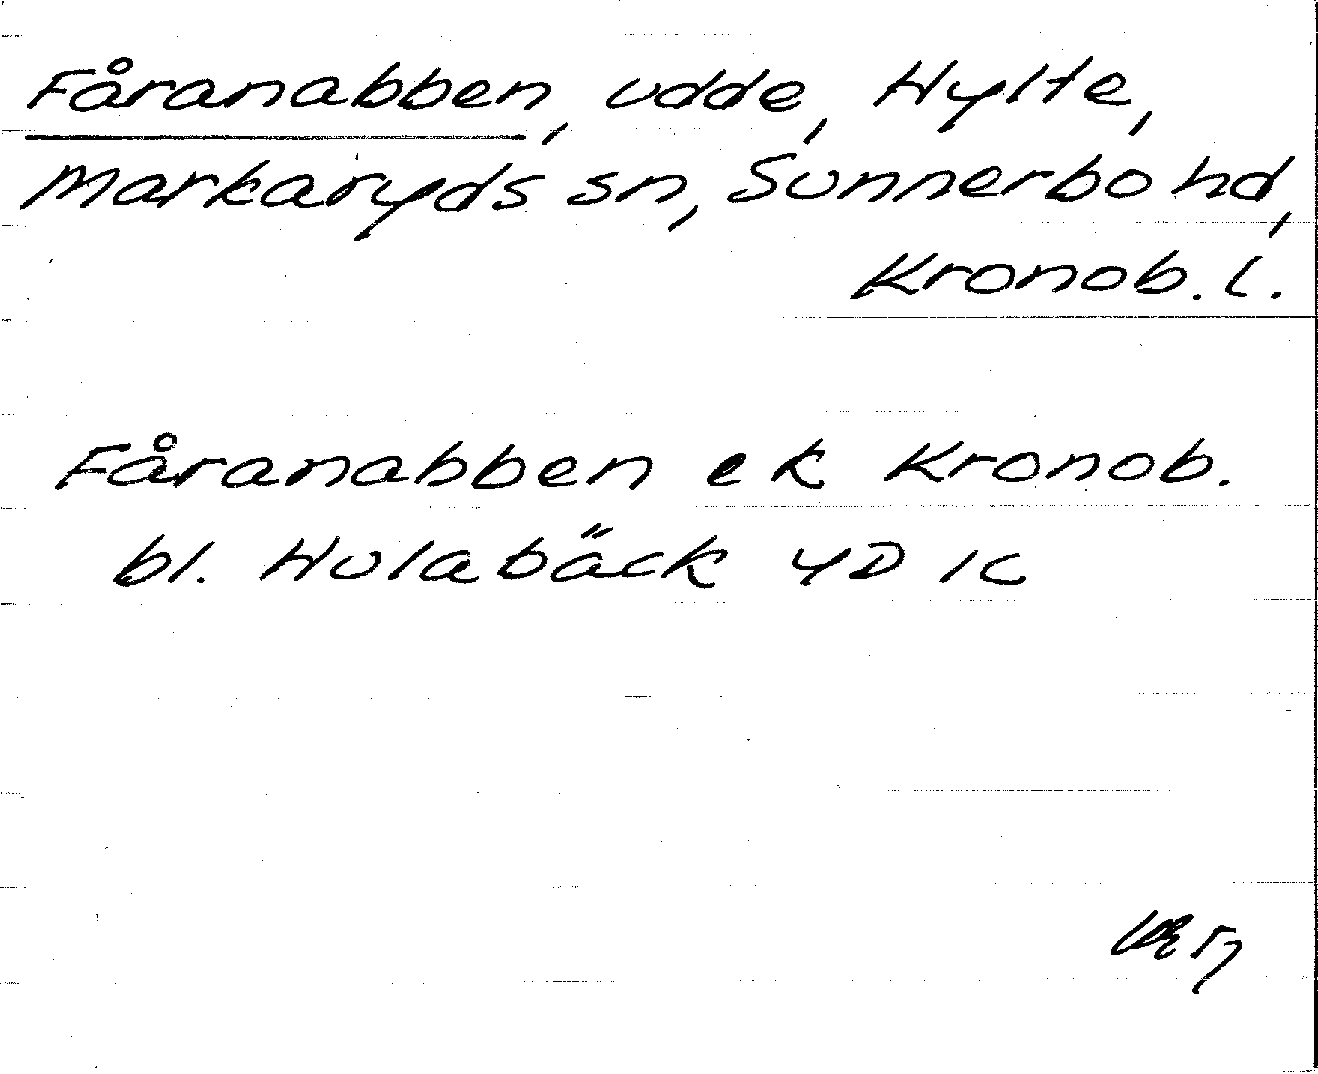 Fåranabben, udde, Hylte,
Markaryds sn, Sunnerbo hd,
Kronob. l.
Fåranabben ek Kronob.
bl. Hulabäck 4D 1c